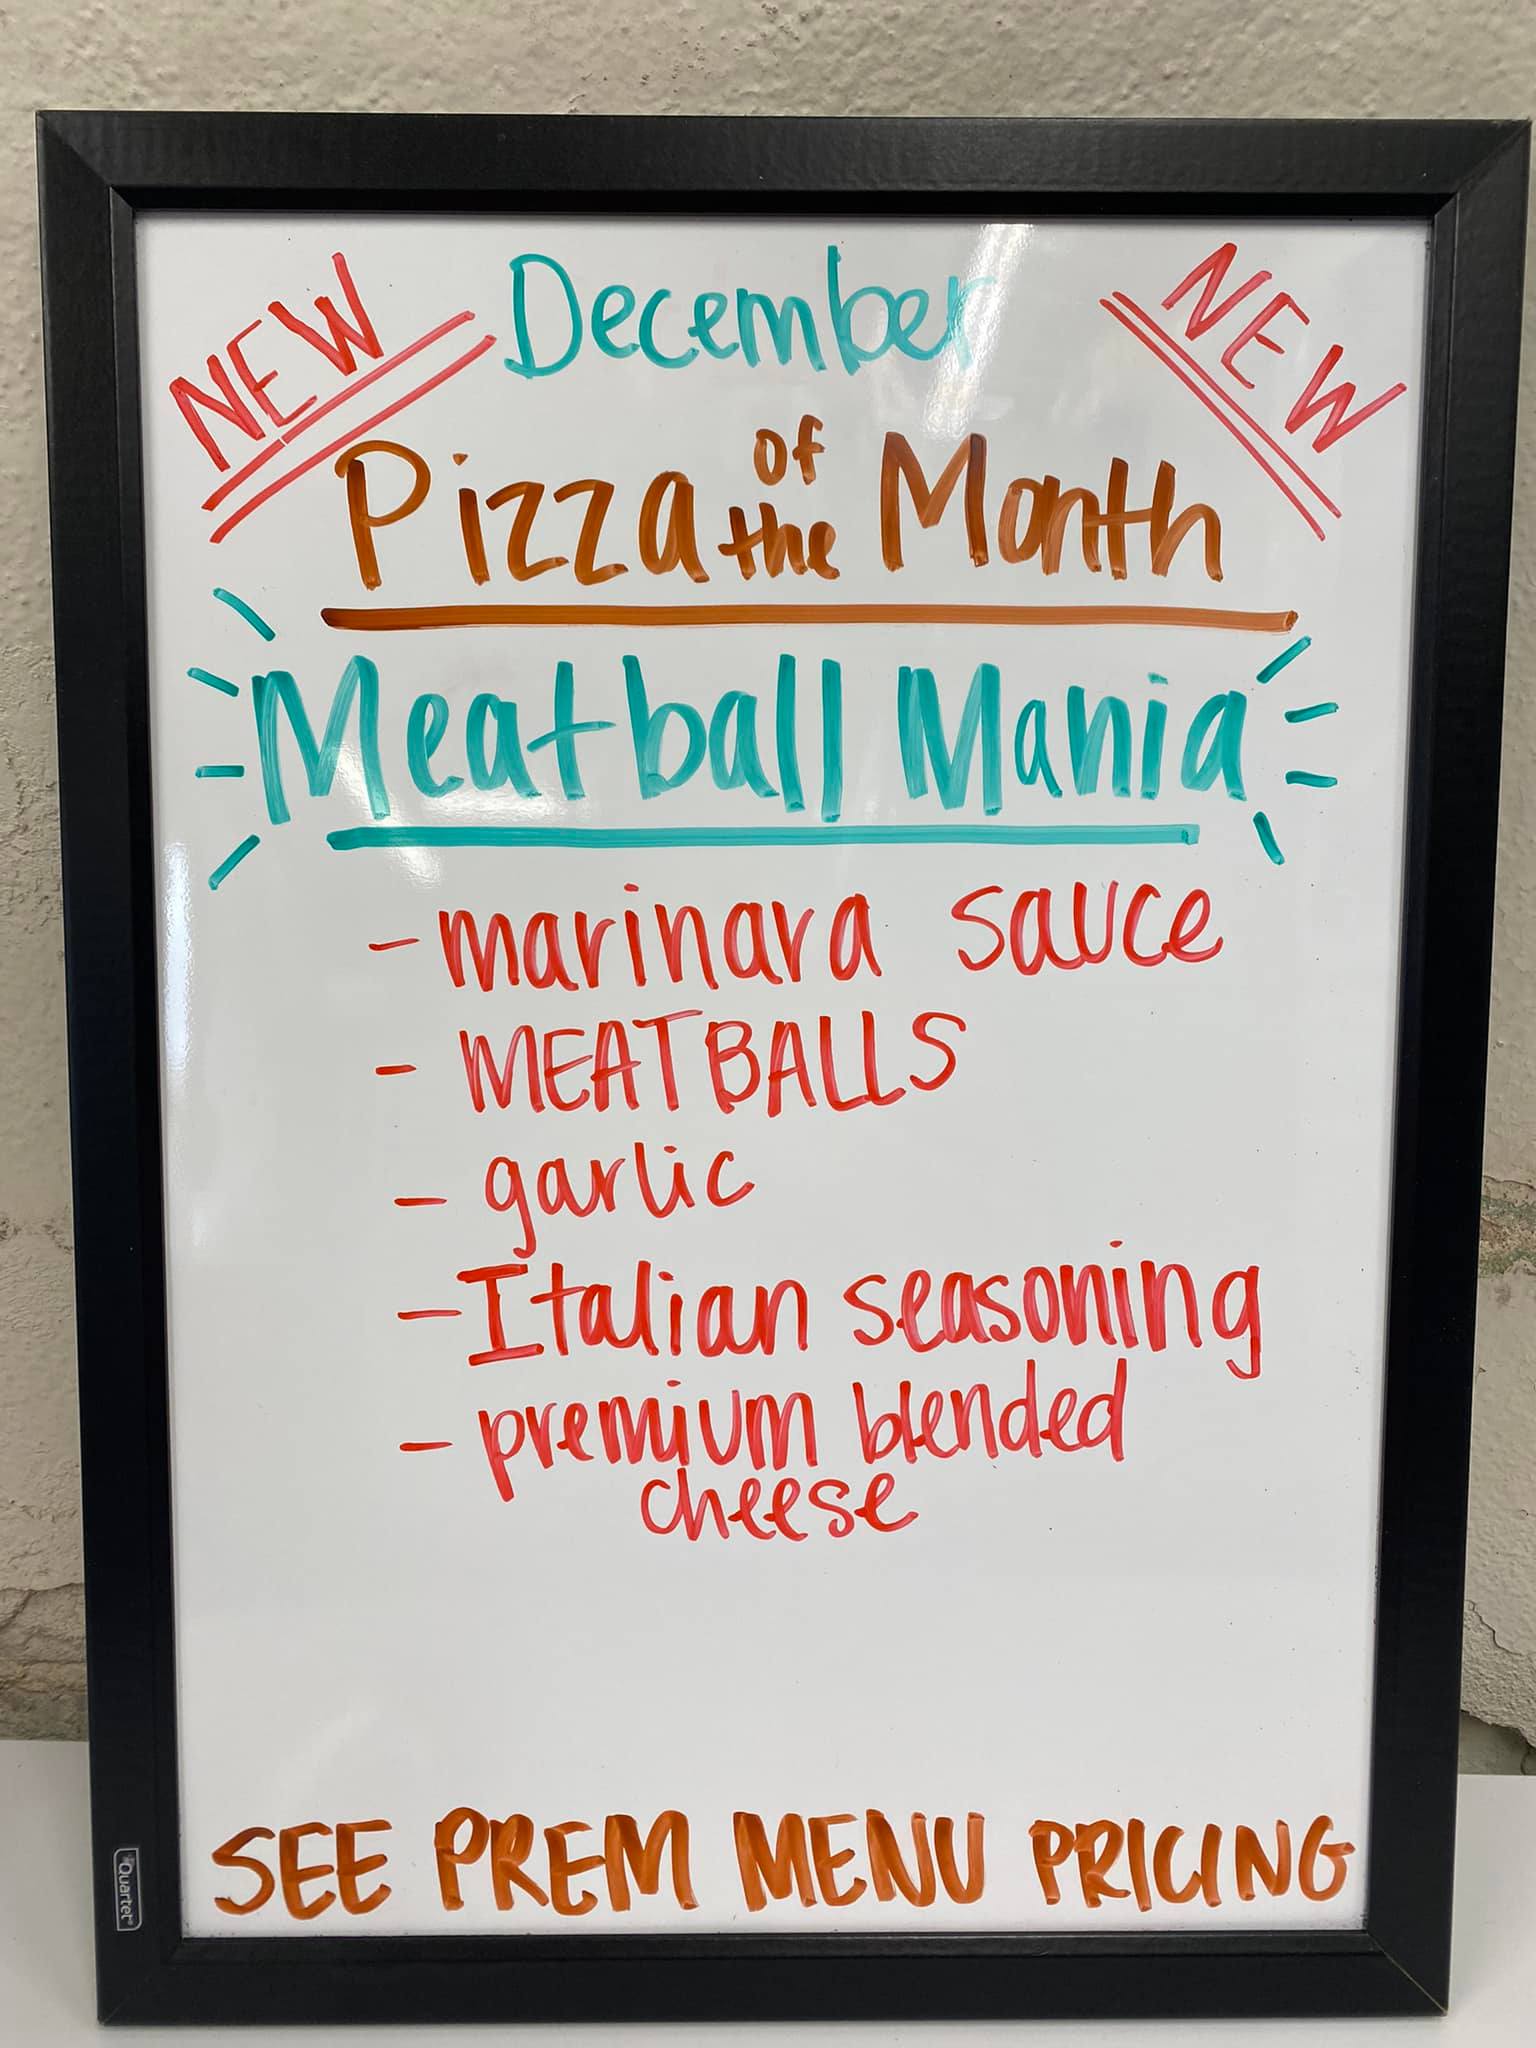 NEW
December
NEW
Pizza of the Month
Meatball Mania
- marinara sauce
- MEATBALLS
- garlic
- Italian seasoning
- premium blended
cheese
SEE PREM MENU PRICING
Quartet®